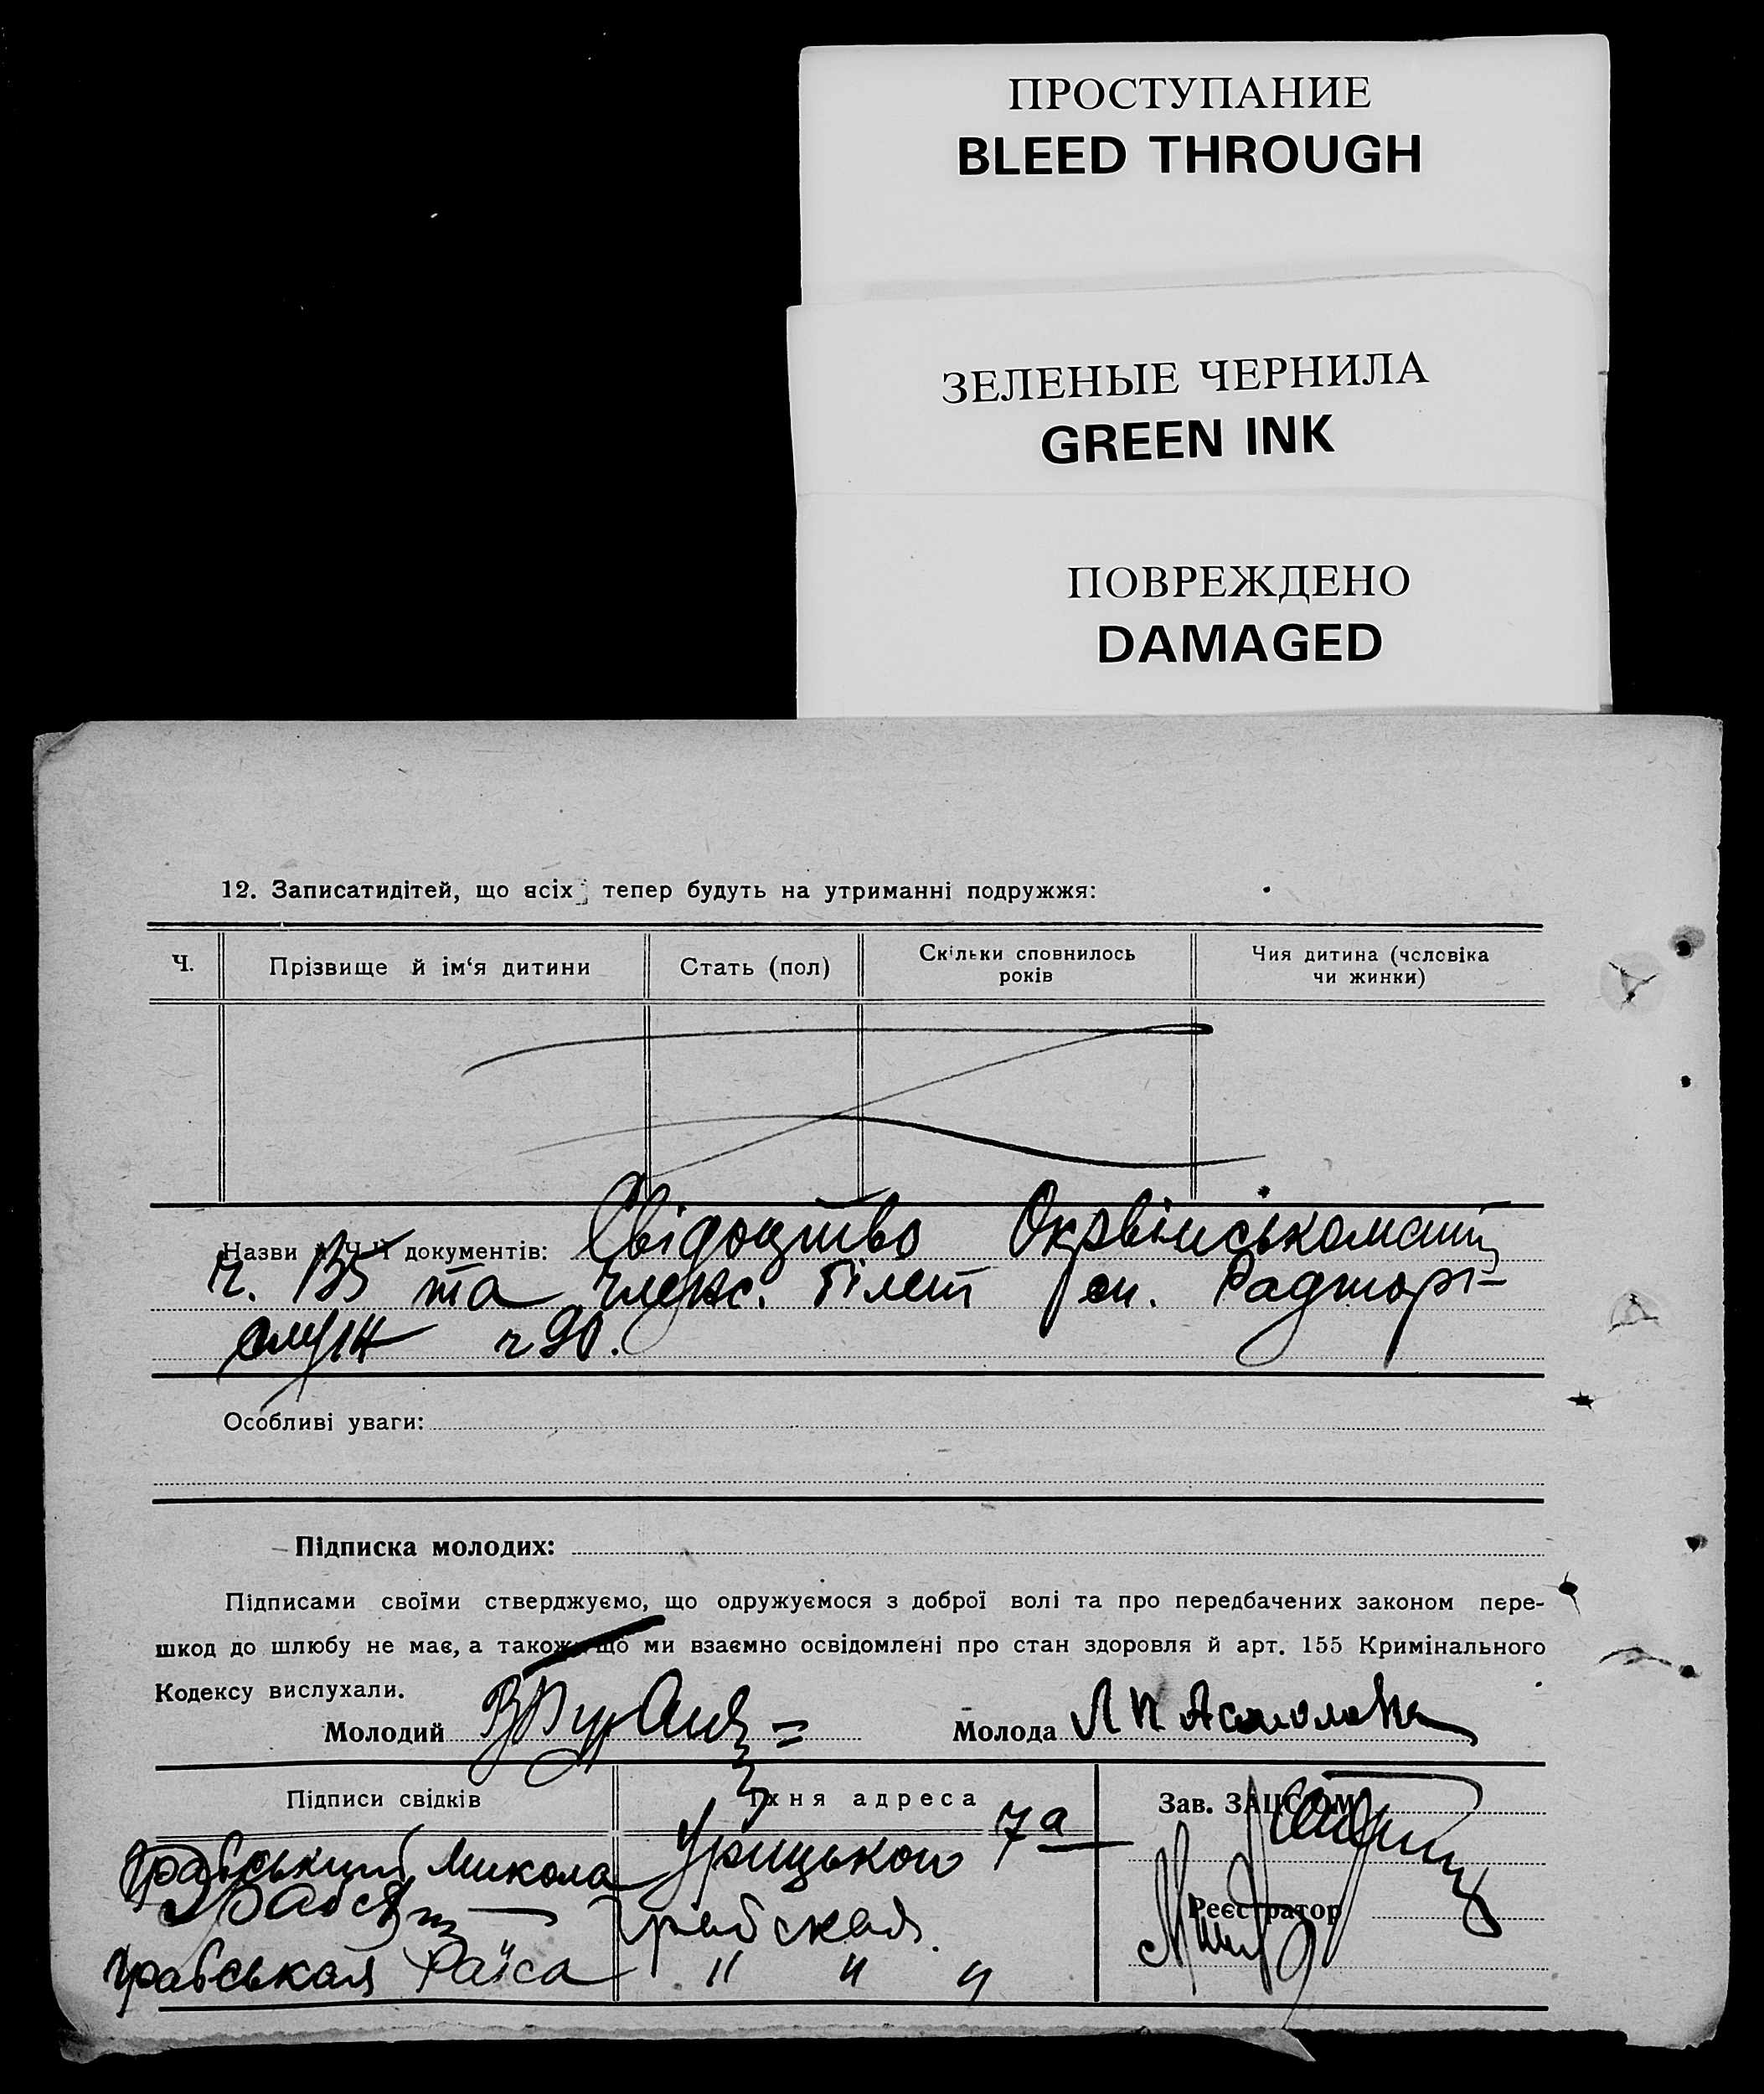 ПРОСТУПАНИЕ
BLEED THROUGH
ЗЕЛЕНЫЕ ЧЕРНИЛА
GREEN INK
ПОВРЕЖДЕНО
DAMAGED
12. Записатидітей, що всіх тепер будуть на утриманні подружжя:
Ч.
Прізвище й ім‘я дитини
Стать (пол)
Скільки сповнилось
років
Чия дитина (чоловіка
чи жинки)
Назви й ЧЧ документів: Свідоцтво
ч. 135 та членс. білет
ч 90.
Особливі уваги:
Підписка молодих:
Підписами своїми стверджуємо, що одружуємося з доброї волі та про передбачених законом пере-
шкод до шлюбу не має, а також, що ми взаємно освідомлені про стан здоровля й арт. 155 Кримінального
Кодексу вислухали.
Молодий
Молода
Підписи свідків
Їхня адреса
Зав. ЗАЦСОМ
Грабський Микола
Урицького 7а
Реєстратор
Грабская
Грабськая Раїса
" " "